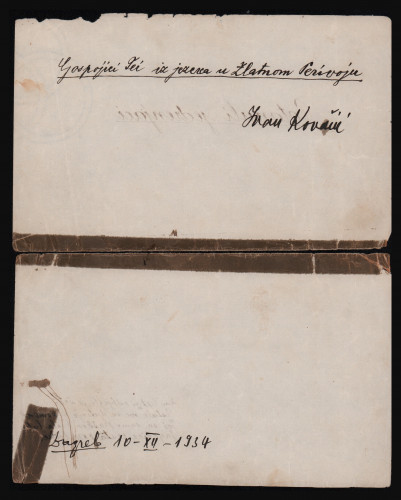 Gospojici Tei iz jezera u Zlatnom Perivoju
Ivan Kovačić
Zagreb 10-XII-1934